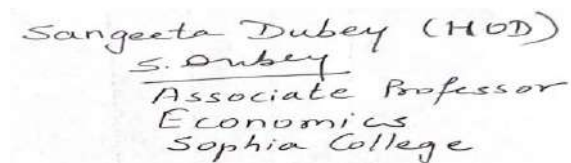 Sangeeta Dubey (HOD)
S. Dubey
Associate Professor
Economics
Sophia College